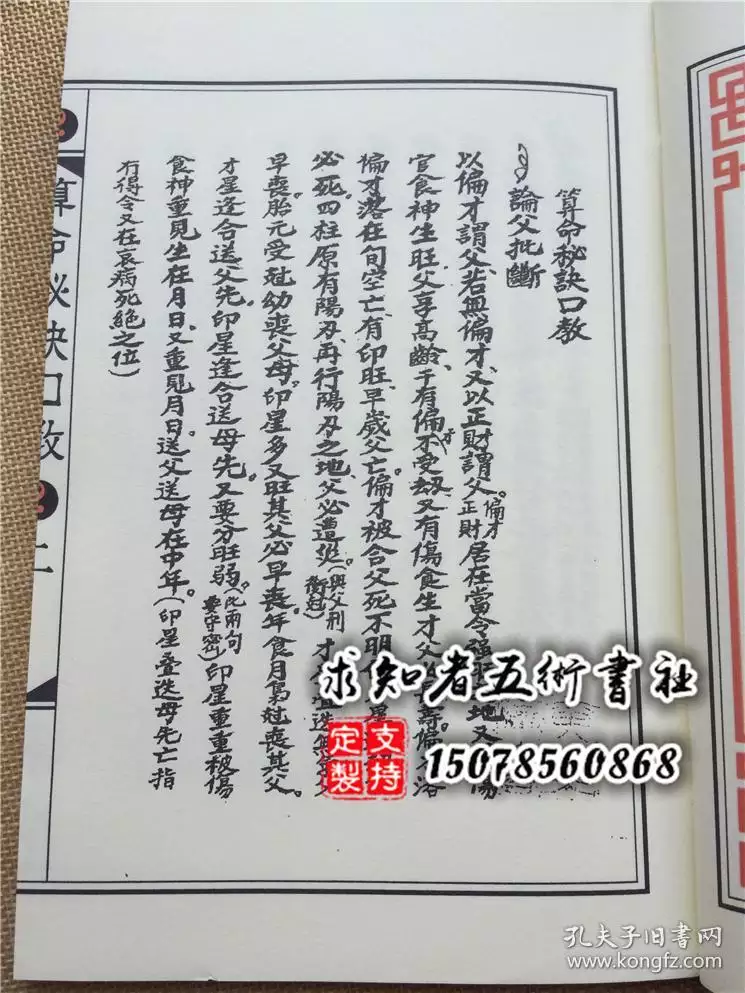 算命秘訣口教
論父批斷
以偏才謂父若無偏才又以正財謂父。偏才正財居在當令強旺地又
官食神生旺父享高齡干有偏才不受劫又有傷食生才父
偏才落在旬空亡有印旺早歲父亡偏才被合父死不明
必死四柱原有陽刃再行陽刃之地父必遭
(與父刑衝尅)才
早喪胎元受尅幼喪父母印星多又旺其父必早喪年食月梟尅喪其父
才星逢合送父先印星逢合送母先又要分旺弱(此兩句要守密)印星重重被傷
食神重見生在月日又重見月日送父送母在中年(印星疊迭母先亡指
有得令又在衰病死絕之位)
算命秘訣口教 二
求知者五術書社
支持定製
15078560868
孔夫子旧書网
www.kongfz.com